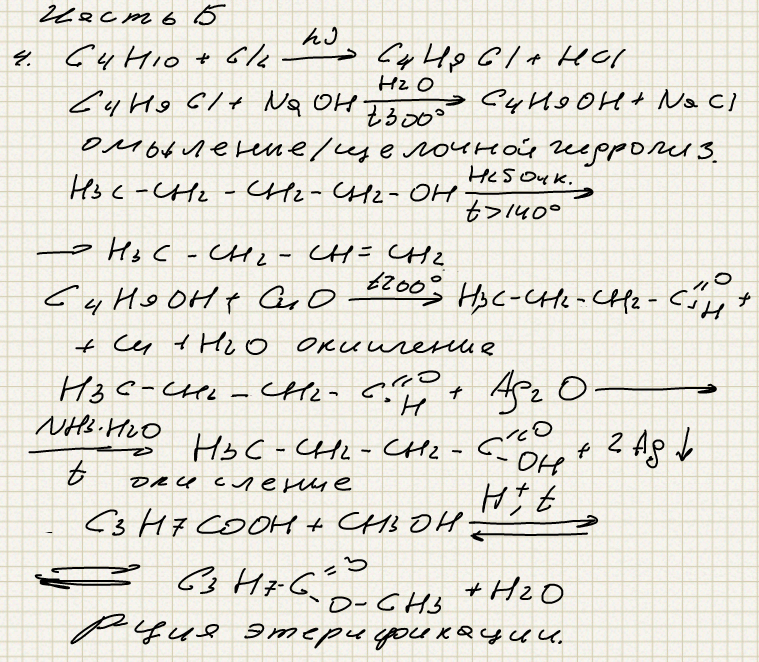 Часть Б
4. C4H10 + Cl2 hν → C4H9Cl + HCl
C4H9Cl + NaOH H2O t300° → C4H9OH + NaCl
омыление/щелочной гидролиз.
H3C-CH2-CH2-CH2-OH H2SO4к. t>140° →
→ H3C-CH2-CH=CH2
C4H9OH + CuO t200° → H3C-CH2-CH2-C=O H +
+ Cu + H2O окисление
H3C-CH2-CH2-C=O H + Ag2O →
NH3·H2O t → H3C-CH2-CH2-C=O OH + 2Ag↓
окисление
C3H7COOH + CH3OH H+, t ⇄
⇄ C3H7-C=O O-CH3 + H2O
рция этерификации.